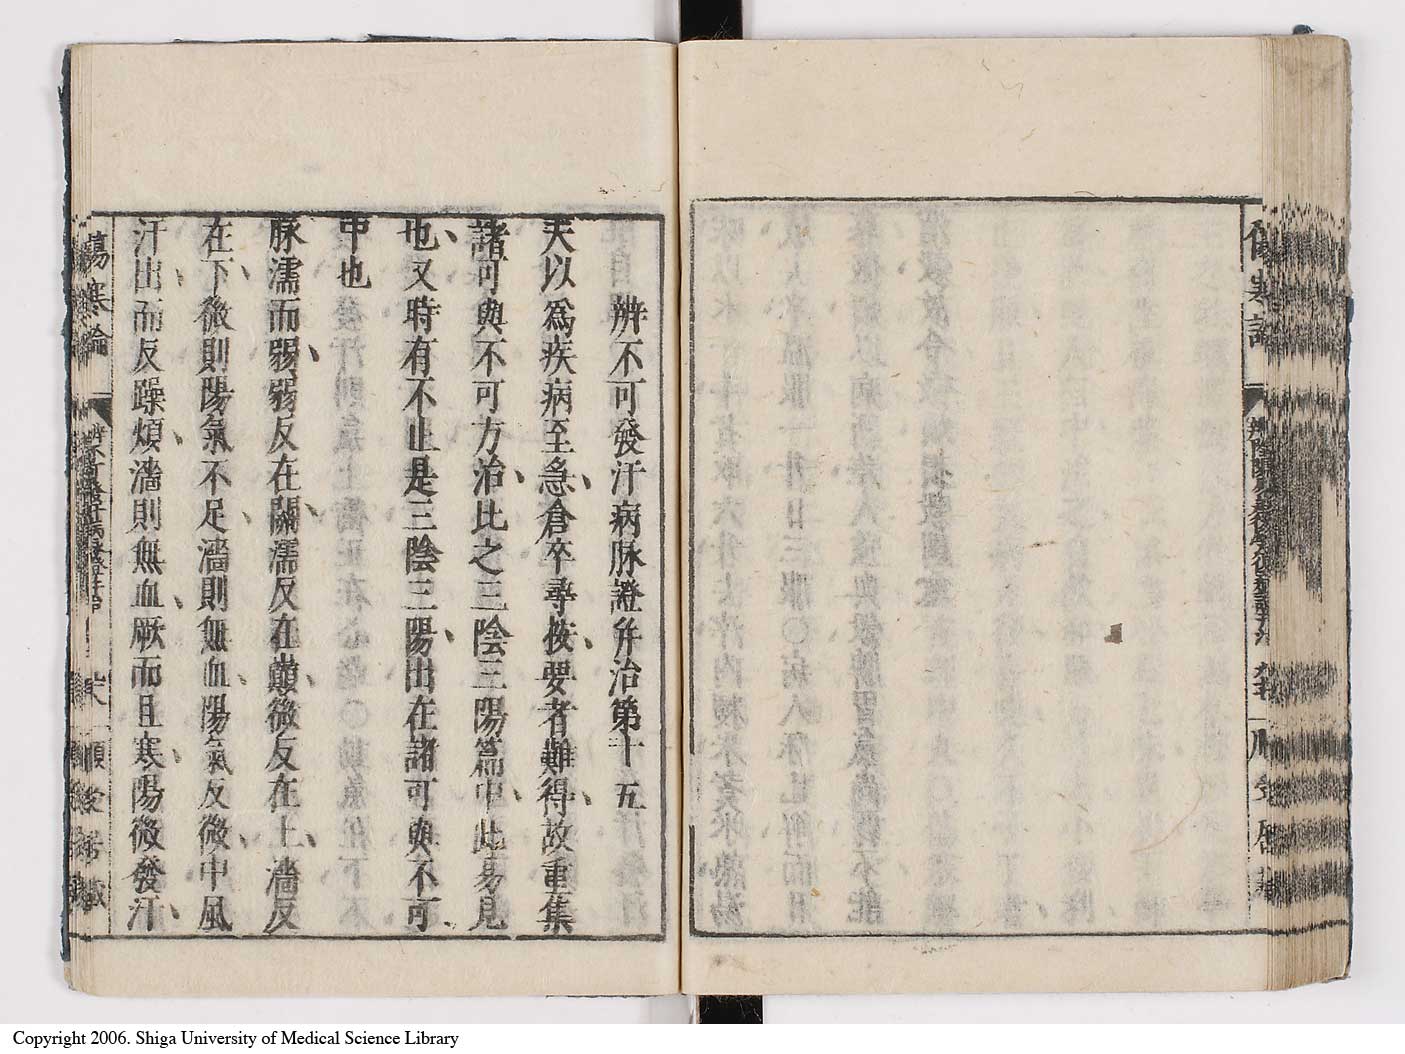 傷寒論
辨不可發汗病脉證并治第十五
夫以爲疾病至急倉卒尋按要者難得故重集
諸可與不可方治比之三陰三陽篇中此易見
也又時有不止是三陰三陽出在諸可與不可
中也
脉濡而弱弱反在關濡反在巔微反在上濇反
在下微則陽氣不足濇則無血陽氣反微中風
汗出而反躁煩濇則無血厥而且寒陽微發汗
傷寒論
Copyright 2006. Shiga University of Medical Science Library